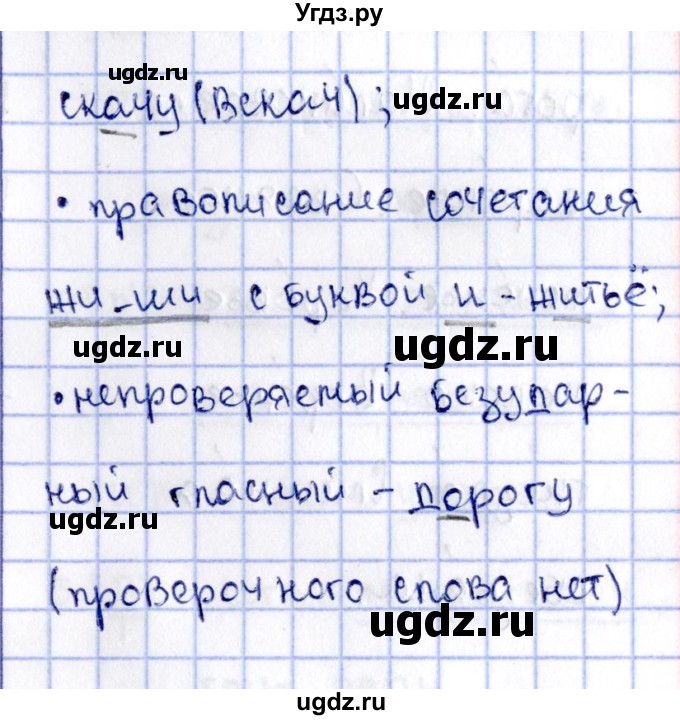 Угдз.ру
ugdz.ru
скачу (вскач);
ugdz.ru
• правописание сочетания
жи-ши с буквой и - житьё;
ugdz.ru
ugdz.ru
• непроверяемый безудар-
ный гласный - дорогу
ugdz.ru
(проверочного слова нет)
ugdz.ru
ugdz.ru